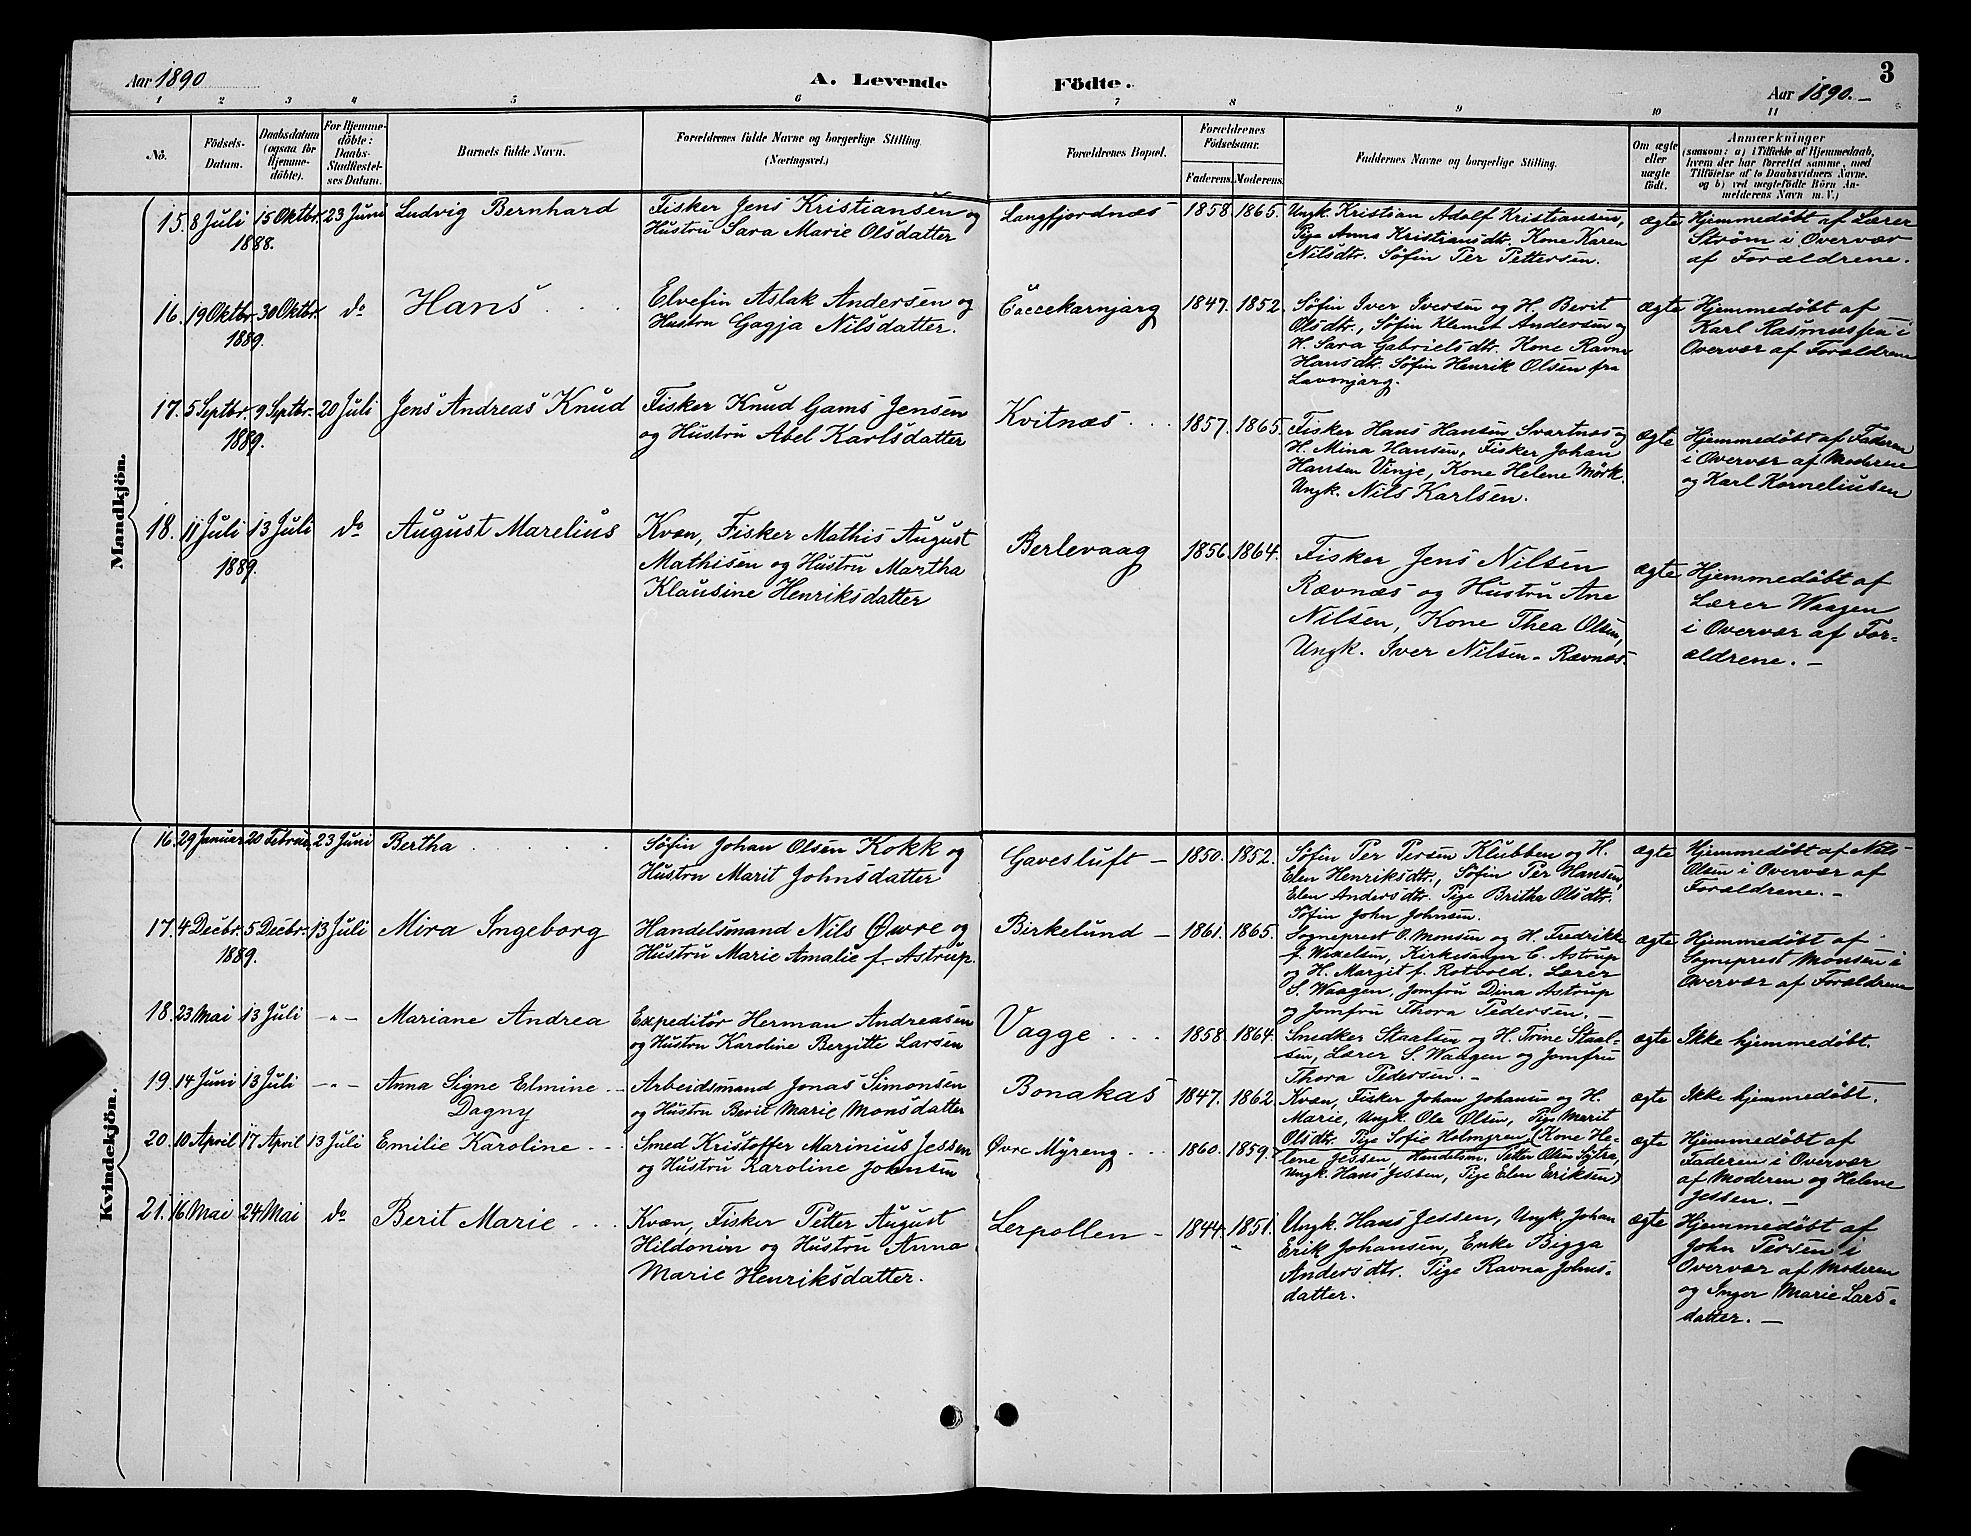 3
Aar 1890
A. Levende
Födte.
Aar 1890. —
1 2 3 4 5 6 7 8 9 10 11
No.
Födsels-
Datum.
Daabsdatum
(ogsaa for
Hjemme-
döbte).
For Hjemme-
döbte:
Daabs-
Stadfæstel-
ses Datum.
Barnets fulde Navn.
Forældrenes fulde Navne og borgerlige Stilling.
(Næringsvei.)
Forældrenes Bopæl.
Forældrenes
Födselsaar.
Faderens. Moderens.
Faddernes Navne og borgerlige Stilling.
Om ægte
eller
uægte
födt.
Anmærkninger
(saasom: a) i Tilfælde af Hjemmedaab,
hvem der har forrettet samme, med
Tilföielse af to Daabsvidners Navne.
og b) ved uægtefödte Börn An-
melderens Navn m. V.)
Mandkjön.
15. 8 Juli 15 Oktbr. 23 Juni Ludvig Bernhard
1888.
Fisker Jens Kristiansen og
Hustru Sara Marie Olsdatter
Langfjordnæs 1858 1865.
Ungk. Kristian Adolf Kristiansen,
Pige Anna Kristiansdtr. Kone Karen
Nilsdtr. Søfin Per Pettersen.
ægte
Hjemmedøbt af Lærer
Strøm i Overvær
af Forældrene.
16. 19 Oktbr. 30 Oktbr. do Hans
1889.
Elvefin Aslak Andersen og
Hustru Gagja Nilsdatter.
Caccekarnjarg 1847. 1852.
Søfin Iver Iversen og H. Berit
Olsdtr., Søfin Klemet Andersen og
H. Sara Gabrielsdtr. Kone Ravna
Hansdtr. Søfin Henrik Olsen fra
Lavonjarg.
ægte
Hjemmedøbt af
Karl Rasmussen i
Overvær af Forældrene
17. 5 Septbr. 9 Septbr. 20 Juli Jens Andreas Knud
1889.
Fisker Knud Gams Jensen
og Hustru Abel Karlsdatter
Kvitnæs 1857. 1865.
Fisker Hans Hansen Svartnæs og
H. Mina Hansen, Fisker Johan
Hansen Vinje, Kone Helene Mörk.
Ungk. Nils Karlsen.
ægte
Hjemmedøbt af Faderen
i Overvær af Moderene
og Karl Korneliusen
18. 11 Juli 13 Juli do August Marelius
1889.
Kvæn, Fisker Mathis August
Mathisen og Hustru Martha
Klausine Henriksdatter
Berlevaag 1856. 1864.
Fisker Jens Nilsen
Rævnæs og Hustru Ane
Nilsen, Kone Thea Olsen,
Ungk. Iver Nilsen - Rævnæs.
ægte
Hjemmedøbt af
Lærer Waagen
i Overvær af For-
ældrene. —
Kvindekjön.
16. 29 Januar 20 Februar 23 Juni Bertha
Søfin Johan Olsen Kokk og
Hustru Marit Johnsdatter
Gavesluft — 1850. 1852.
Søfin Per Persen Klubben og H.
Elen Henriksdtr., Søfin Per Hansen,
Elen Andersdtr. Pige Britha Olsdtr.
Søfin John Johnsen.
ægte
Hjemmedøbt af Nils
Olsen i Overvær af
Forældrene. —
17. 4 Decbr. 5 Decbr. 13 Juli Mira Ingeborg
1889.
Handelsmand Nils Øvre og
Hustru Marie Amalie f. Astrup.
Birkelund — 1861. 1865.
Sogneprest O. Monsen og H. Fredrikke
f. Wexelsen, Kirkesanger C. Astrup
og H. Margit f. Rotvold. Lærer
S. Waagen, Jomfru Dina Astrup
og Jomfru Thora Pedersen. —
ægte
Hjemmedøbt af
Sogneprest Monsen i
Overvær af Forældrene
18. 23 Mai 13 Juli —"— Mariane Andrea
Expeditör Herman Andreasen
og Hustru Karoline Bergitte Larsen
Vagge 1858. 1864.
Snedker Staalsen og H. Trine Staal-
sen, Lærer S. Waagen og Jomfru
Thora Pedersen. —
ægte
Ikke hjemmedøbt.
19. 14 Juni 13 Juli —"— Anna Signe Elmine
Dagny
Arbeidsmand Jonas Simonsen
og Hustru Berit Marie Monsdatter
Bonakas 1847. 1862
Kvæn, Fisker Johan Johansen og H.
Marie, Ungk. Ole Olsen, Pige Marit
Olsdtr. Pige Sofie Holmgren
ægte
Ikke hjemmedøbt.
20. 10 April 17 April 13 Juli Emilie Karoline
Smed Kristoffer Marinius Jessen
og Hustru Karoline Johnsen
Øvre Myreng 1860. 1859.
(Kone He-
lene Jessen, Handelsm. Petter Olsen Sylra,
Ungk. Hans Jessen, Pige Elen Eriksen)
ægte
Hjemmedøbt af
Faderen i Overvær
af Moderen og Helene
Jessen. —
21. 16 Mai 24 Mai do Berit Marie
Kvæn, Fisker Petter August
Hildonen og Hustru Anna
Marie Henriksdatter.
Lerpollen — 1844. 1851.
Ungk. Hans Jessen, Ungk. Johan
Erik Johansen, Enke Bigga
Andersdtr. Pige Ravna Johns-
datter.
ægte
Hjemmedøbt af
John Persen i
Overvær af Moderen
og Inger Marie Lars-
datter. —